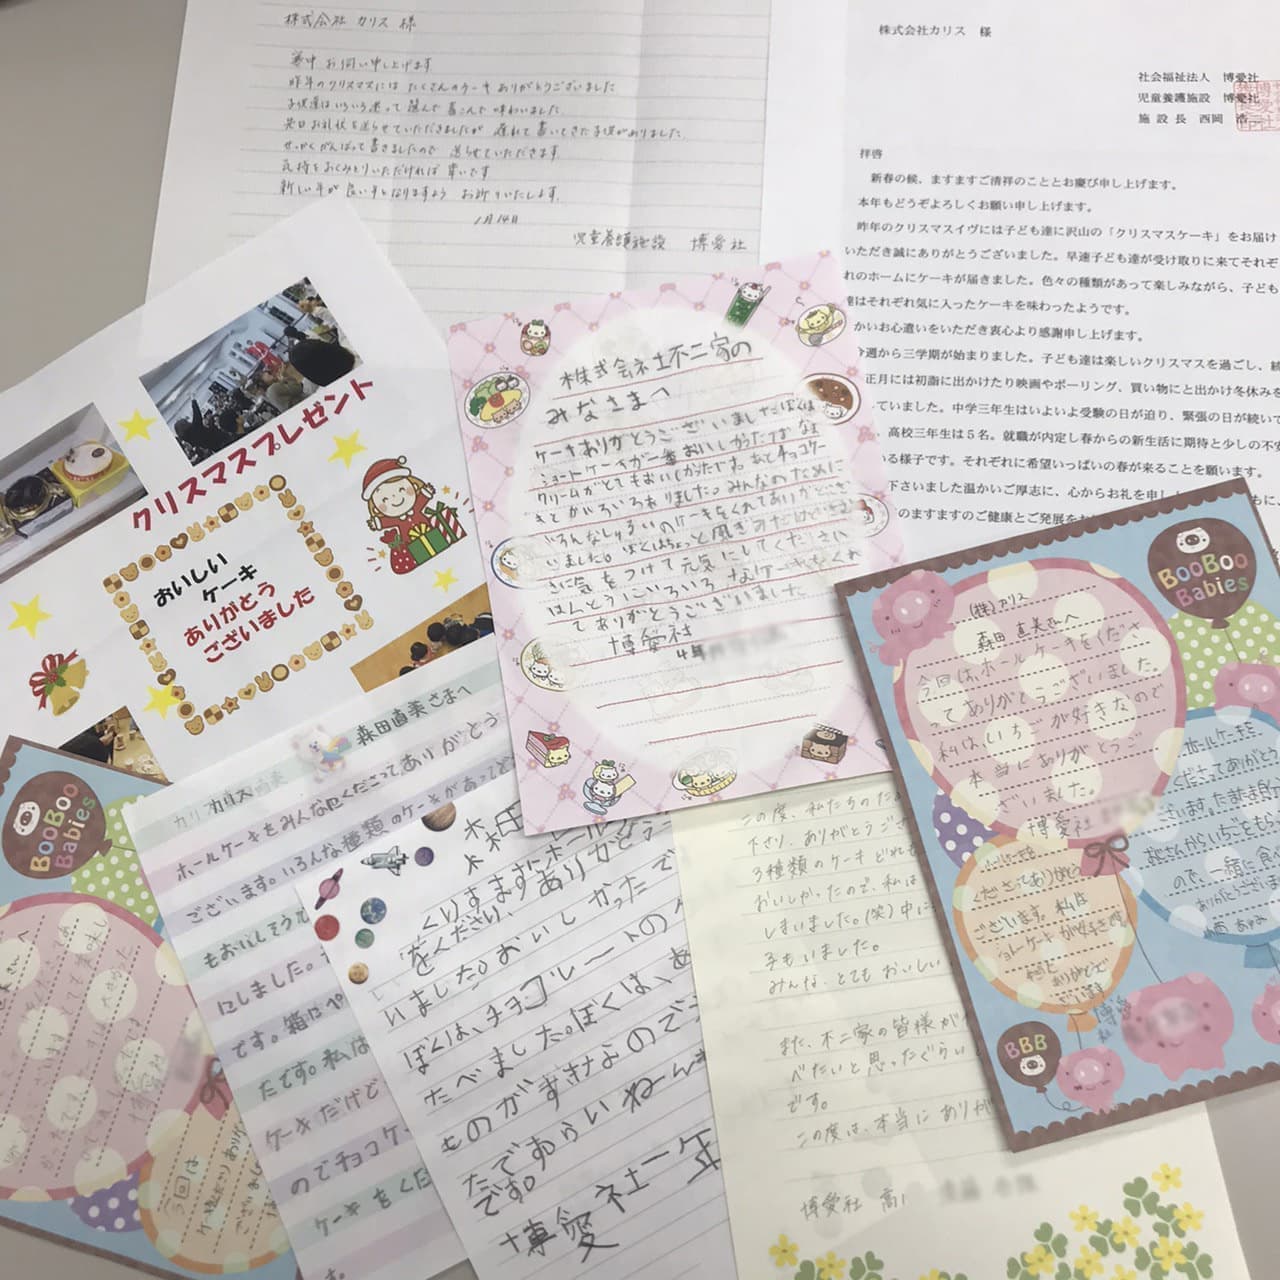 株式会社 カリス 様
寒中 お伺い申し上げます
昨年のクリスマスには たくさんのケーキ ありがとうございました
子供達はいろいろ迷って 選んで 喜こんで 味わいました
先日お礼状を送らせていただきましたが 遅れて 書いてきた子供がありました
せっかくがんばって書きましたので 送らせていただきます
気持をおくみとりいただければ 幸いです
新しい年が良い年となりますよう お祈りいたします
1月14日
児童養護施設 博愛社
株式会社カリス 様
社会福祉法人 博愛社
児童養護施設 博愛社
施設長 西岡
拝啓
新春の候、ますますご清祥のこととお慶び申し上げます。
本年もどうぞよろしくお願い申し上げます。
昨年のクリスマスイヴには子ども達に沢山の「クリスマスケーキ」をお届け
いただき誠にありがとうございました。早速子ども達が受け取りに来てそれぞ
れのホームにケーキが届きました。色々の種類があって楽しみながら、子ども
達はそれぞれ気に入ったケーキを味わったようです。
かいお心遣いをいただき衷心より感謝申し上げます。
今週から三学期が始まりました。子ども達は楽しいクリスマスを過ごし、続
正月には初詣に出かけたり映画やボーリング、買い物にと出かけ冬休みを
ていました。中学三年生はいよいよ受験の日が迫り、緊張の日が続いて
、高校三年生は5名。就職が内定し春からの新生活に期待と少しの不安
いる様子です。それぞれに希望いっぱいの春が来ることを願います。
下さいました温かいご厚志に、心からお礼を申し
のますますのご健康とご発展をお
クリスマスプレゼント
おいしい
ケーキ
ありがとう
ございました
株式会社不二家の
みなさまへ
ケーキありがとうございました。ぼくは
ショートケーキが一番おいしかったですなま
クリームがとてもおいしかったです。あとチョコケー
きとかいろいろありました。みんなのために
いろんなしゅるいのケーキをくれてありがとうござ
いました。ぼくはちょっと風ぎみだけどみな
さに気をつけて元気にしてください
ほんとうにいろいろなケーキをくれ
てありがとうございました
博愛社
4年
BooBoo
Babies
(株)カリス
森田 直美さんへ
今回は、ホールケーキをくださ
ってありがとうございました。
私は、いちごが好きなので
本当にありがとうご
ざいました。
博愛社
ホールケーキを
くださってありがとう
ございます。たまき飲ん
おじさんからいちごをもら
ので、一緒に食べ
ありがとうございま
ホールケーキを
くださってありがとう
ございます。私は
ショートケーキが好きなので
ありがとうご
ざいます
博愛社
BBB
カリス
森田直美さまへ
ホールケーキをみんなにくださってありがとう
ございます。いろんな種類のケーキがあってど
もおいしそうで
にしました。
です。箱はペ
たです。私は
ケーキだけど
のでチョコケー
ケーキをくだ
す。
森田
くりすますにホールケーキ
をください、ありがとうござ
いました。おいしかったで
ぼくは、チョコレートのケ
たべました。ぼくは、あ
ものがすきなのでう
たです。らいねんも
です。
博愛社一年
この度、私たちのため
下さり、ありがとうござ
3種類のケーキどれも
おいしかったので、私は
しまいました。(笑)中に
子もいました。
みんな、とてもおいしい
また、不二家の皆様が
べたいと思ったぐらい
です。
この度は、本当にありが
博愛社 高1
BooBoo
Babies
今回は